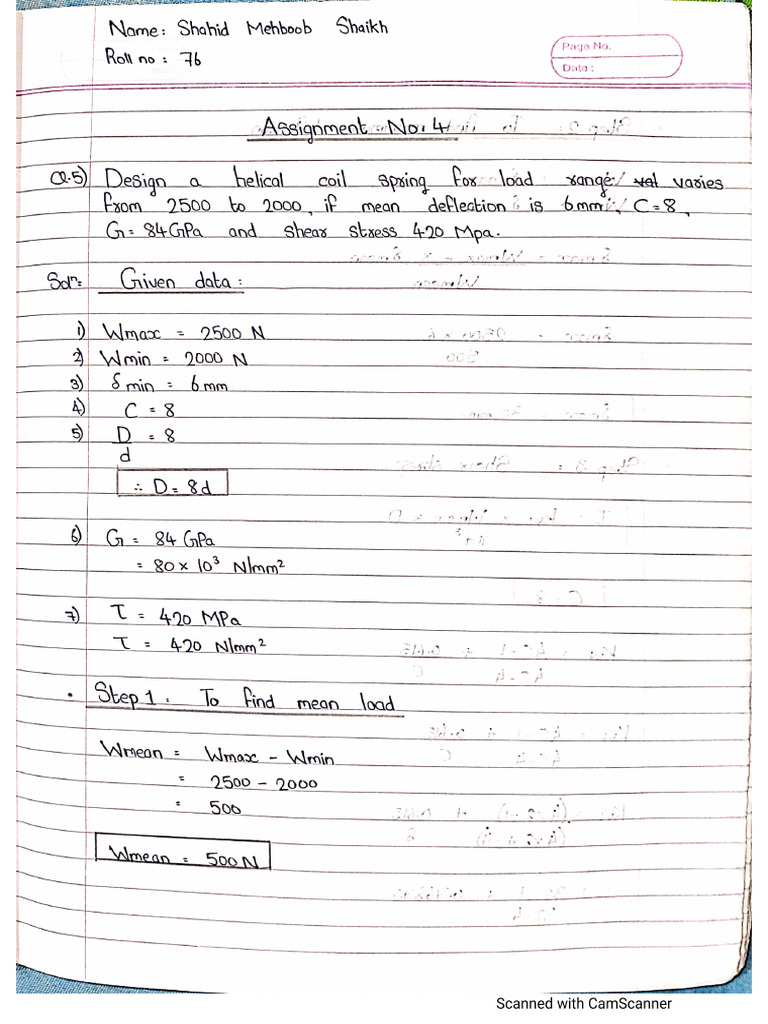 Name: Shahid Mehboob Shaikh
Roll no: 76
Page No.
Date:
Assignment No. 4
Q.5) Design a helical coil spring for load range varies
from 2500 to 2000, if mean deflection is 6mm, C=8,
G=84GPa and shear stress 420 Mpa.
Soln: Given data:
1) Wmax = 2500 N
2) Wmin = 2000 N
3) δmin = 6mm
4) C = 8
5) D/d = 8
∴ D = 8d
6) G = 84 GPa
= 80 × 10³ N/mm²
7) τ = 420 MPa
τ = 420 N/mm²
• Step 1. To find mean load
Wmean = Wmax - Wmin
= 2500 - 2000
= 500
Wmean = 500N
Scanned with CamScanner